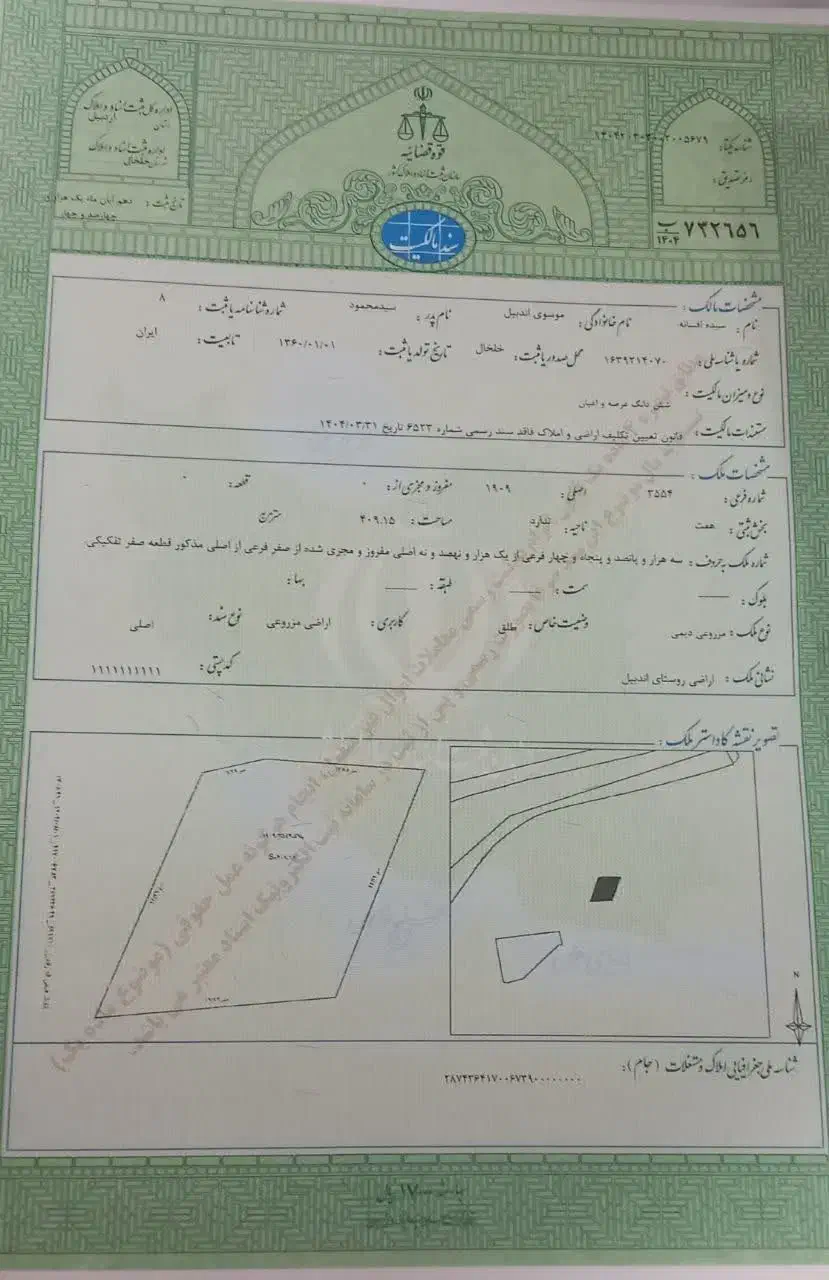 اداره کل ثبت اسناد و املاک
استان اردبیل
اداره ثبت اسناد و املاک
شهرستان خلخال
تاریخ ثبت : دهم آبان ماه یک هزار و
چهارصد و چهار
قوه قضائیه
سازمان ثبت اسناد و املاک کشور
سند مالکیت
شناسه یکتا :
رمز تصدیق :
۷۳۲۶۵۶ ب ۱۴۰۴
مشخصات مالک :
نام : سیده افسانه نام خانوادگی : موسوی اندبیل نام پدر : سیدمحمود شماره شناسنامه یا ثبت : ۸
شماره یا شناسه ملی : ۱۶۳۹۲۱۴۰۷۰ محل صدور یا ثبت : خلخال تاریخ تولد یا ثبت : ۱۳۶۰/۰۱/۰۱ تابعیت : ایران
نوع و میزان مالکیت : شش دانگ عرصه و اعیان
مستندات مالکیت : قانون تعیین تکلیف اراضی و املاک فاقد سند رسمی شماره ۶۵۲۳ تاریخ ۱۴۰۴/۰۳/۳۱
مشخصات ملک :
شماره فرعی : ۳۵۵۴ اصلی : ۱۹۰۹ مفروز و مجزی از : ۰ قطعه : ۰
بخش ثبتی : هفت ناحیه : ندارد مساحت : ۴۰۹.۱۵ مترمربع
شماره ملک به حروف : سه هزار و پانصد و پنجاه و چهار فرعی از یک هزار و نهصد و نه اصلی مفروز و مجزی شده از صفر فرعی از اصلی مذکور قطعه صفر تفکیکی
بلوک : ــــــ سمت : ــــــ طبقه : ــــــ بهاء :
نوع ملک : مزروعی دیمی وضعیت خاص : طلق کاربری : اراضی مزروعی نوع سند : اصلی
نشانی ملک : اراضی روستای اندبیل کد پستی : ۱۱۱۱۱۱۱۱۱۱
تصویر نقشه کاداستر ملک :
N
شناسه ملی جغرافیایی املاک و مستغلات (جام) :